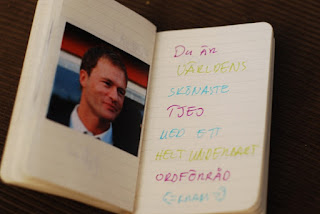 Du är
VÄRLDENS
SKÖNASTE
TJEJ
MED ETT
HELT UNDERBART
ORDFÖRRÅD
KRAM